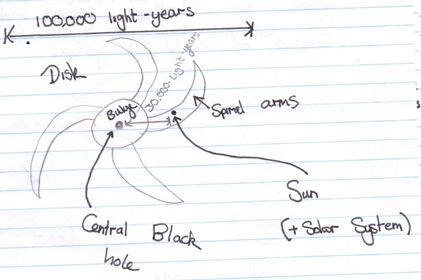 100,000 light-years
Disk
30,000 light-years
Bulge
Spiral arms
Sun
(+ Solar System)
Central Black
hole